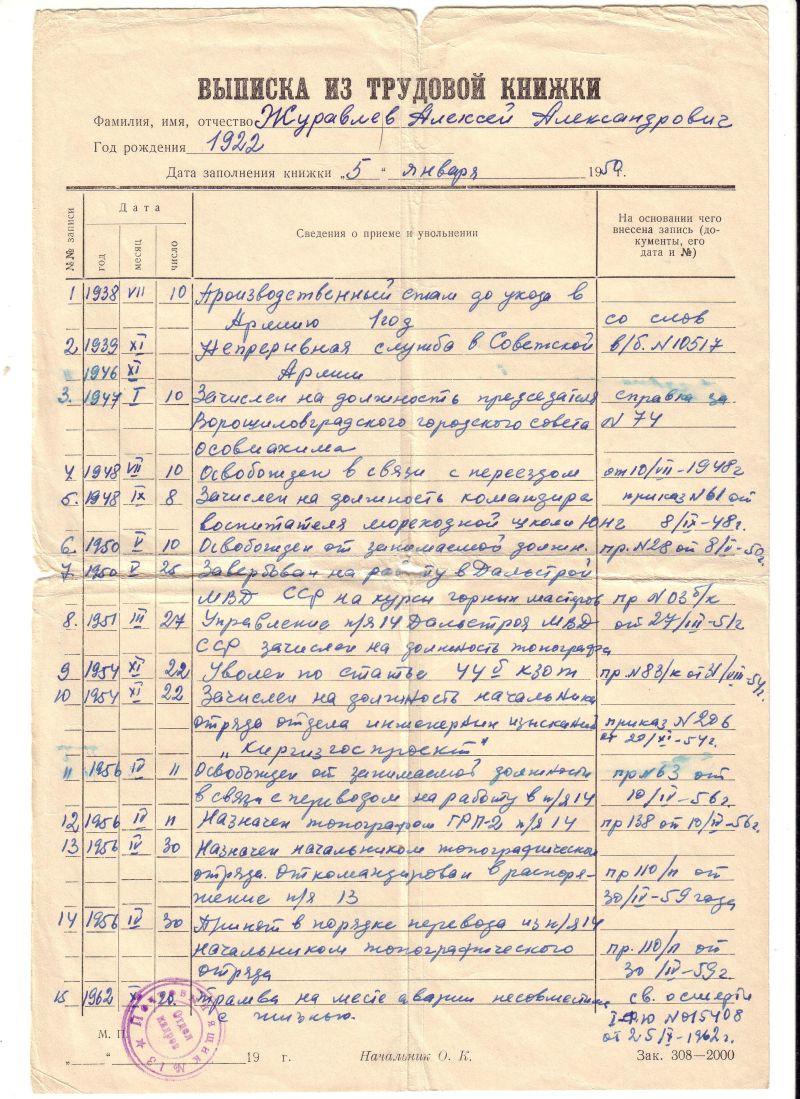 ВЫПИСКА ИЗ ТРУДОВОЙ КНИЖКИ
Фамилия, имя, отчество Журавлев Алексей Александрович
Год рождения 1922
Дата заполнения книжки „5“ января 1950 г.
№№ записи Дата Сведения о приеме и увольнении На основании чего внесена запись (документы, его дата и №)
год месяц число
1 1938 VII 10 Производственный стаж до ухода в
Армию 1 год со слов
2 1939 XI Непрерывная служба в Советской в/б. N 10517
" 1946 XI Армии
3. 1947 I 10 Зачислен на должность председателя справка за
Ворошиловградского городского совета N 74
осовиахима
4 1948 VII 10 Освобожден в связи с переездом от 10/VII-1948г
5. 1948 IX 8 Зачислен на должность командира приказ N 61 от
воспитателя мореходной школы ЮНГ 8/IX-48г.
6. 1950 V 10 Освобожден от занимаемой должн. пр. N 28 от 8/V-50г.
7. 1950 V 25 Завербован на работу в Дальстрой
МВД ССР на курсы горных мастеров пр N 03 б/к
8. 1951 III 27 Управление п/я 14 Дальстроя МВД от 27/III-51г
ССР зачислен на должность топографа
9 1954 XI 22 Уволен по статье 44 б кзот пр. N 83/к от 31/VIII-54г.
10 1954 XI 22 Зачислен на должность начальника
отряда отдела инженерных изысканий приказ N 206
„Киргизгоспроект“ от 20/XI-54г.
11 1956 IV 11 Освобожден от занимаемой должности пр. N 63 от
в связи с переводом на работу в п/я 14 10/IV-56г.
12 1956 IV 11 Назначен топографом ГРП-2 п/я 14 пр 138 от 10/IV-56г.
13 1956 IV 30 Назначен начальником топографическом
отряда. Откомандирован в распоря- пр 110/п от
жение п/я 13 30/IV-59 года
14 1956 IV 30 Принят в порядке перевода из п/я 14
начальником топографического пр. 110/п от
отряда 30/IV-59г.
15 1962 20 Трамва на месте аварии несовместима св. о смерти
с жизнью. N 015408
от 25/IX-1962г.
М. П.
Почтовый ящик № 13
Отдел кадров
„ “ 19 г. Начальник О. К. Зак. 308—2000